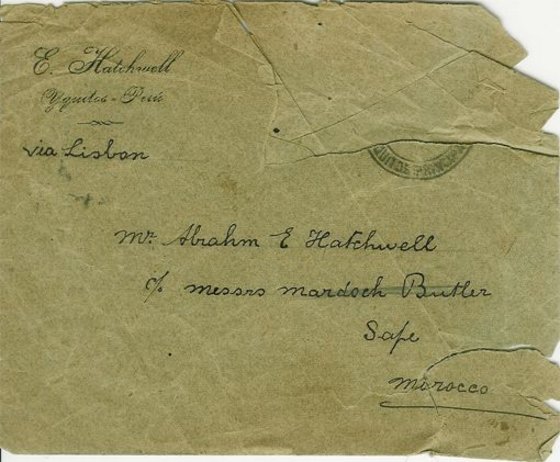 E. Hatchwell
Yquitos - Perú
via Lisbon
Mr. Abrahm E Hatchwell
c/o messrs Mardoch Butler
Safe
Morocco